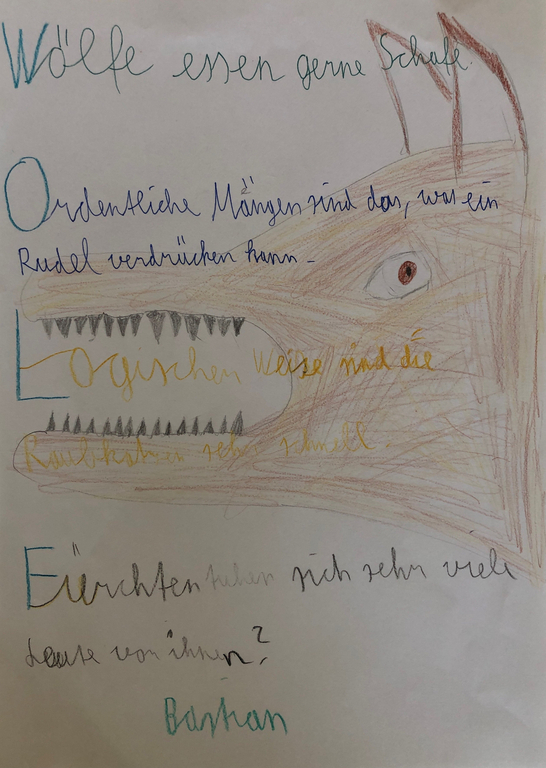 Wölfe essen gerne Schafe.
Ordentliche Mängen sind das, was ein
Rudel verdrücken kann.
Logischen Weise sind die
Raubkatzen sehr schnell.
Füerchten sich sehr viele
Leute von ihnen?
Bastian